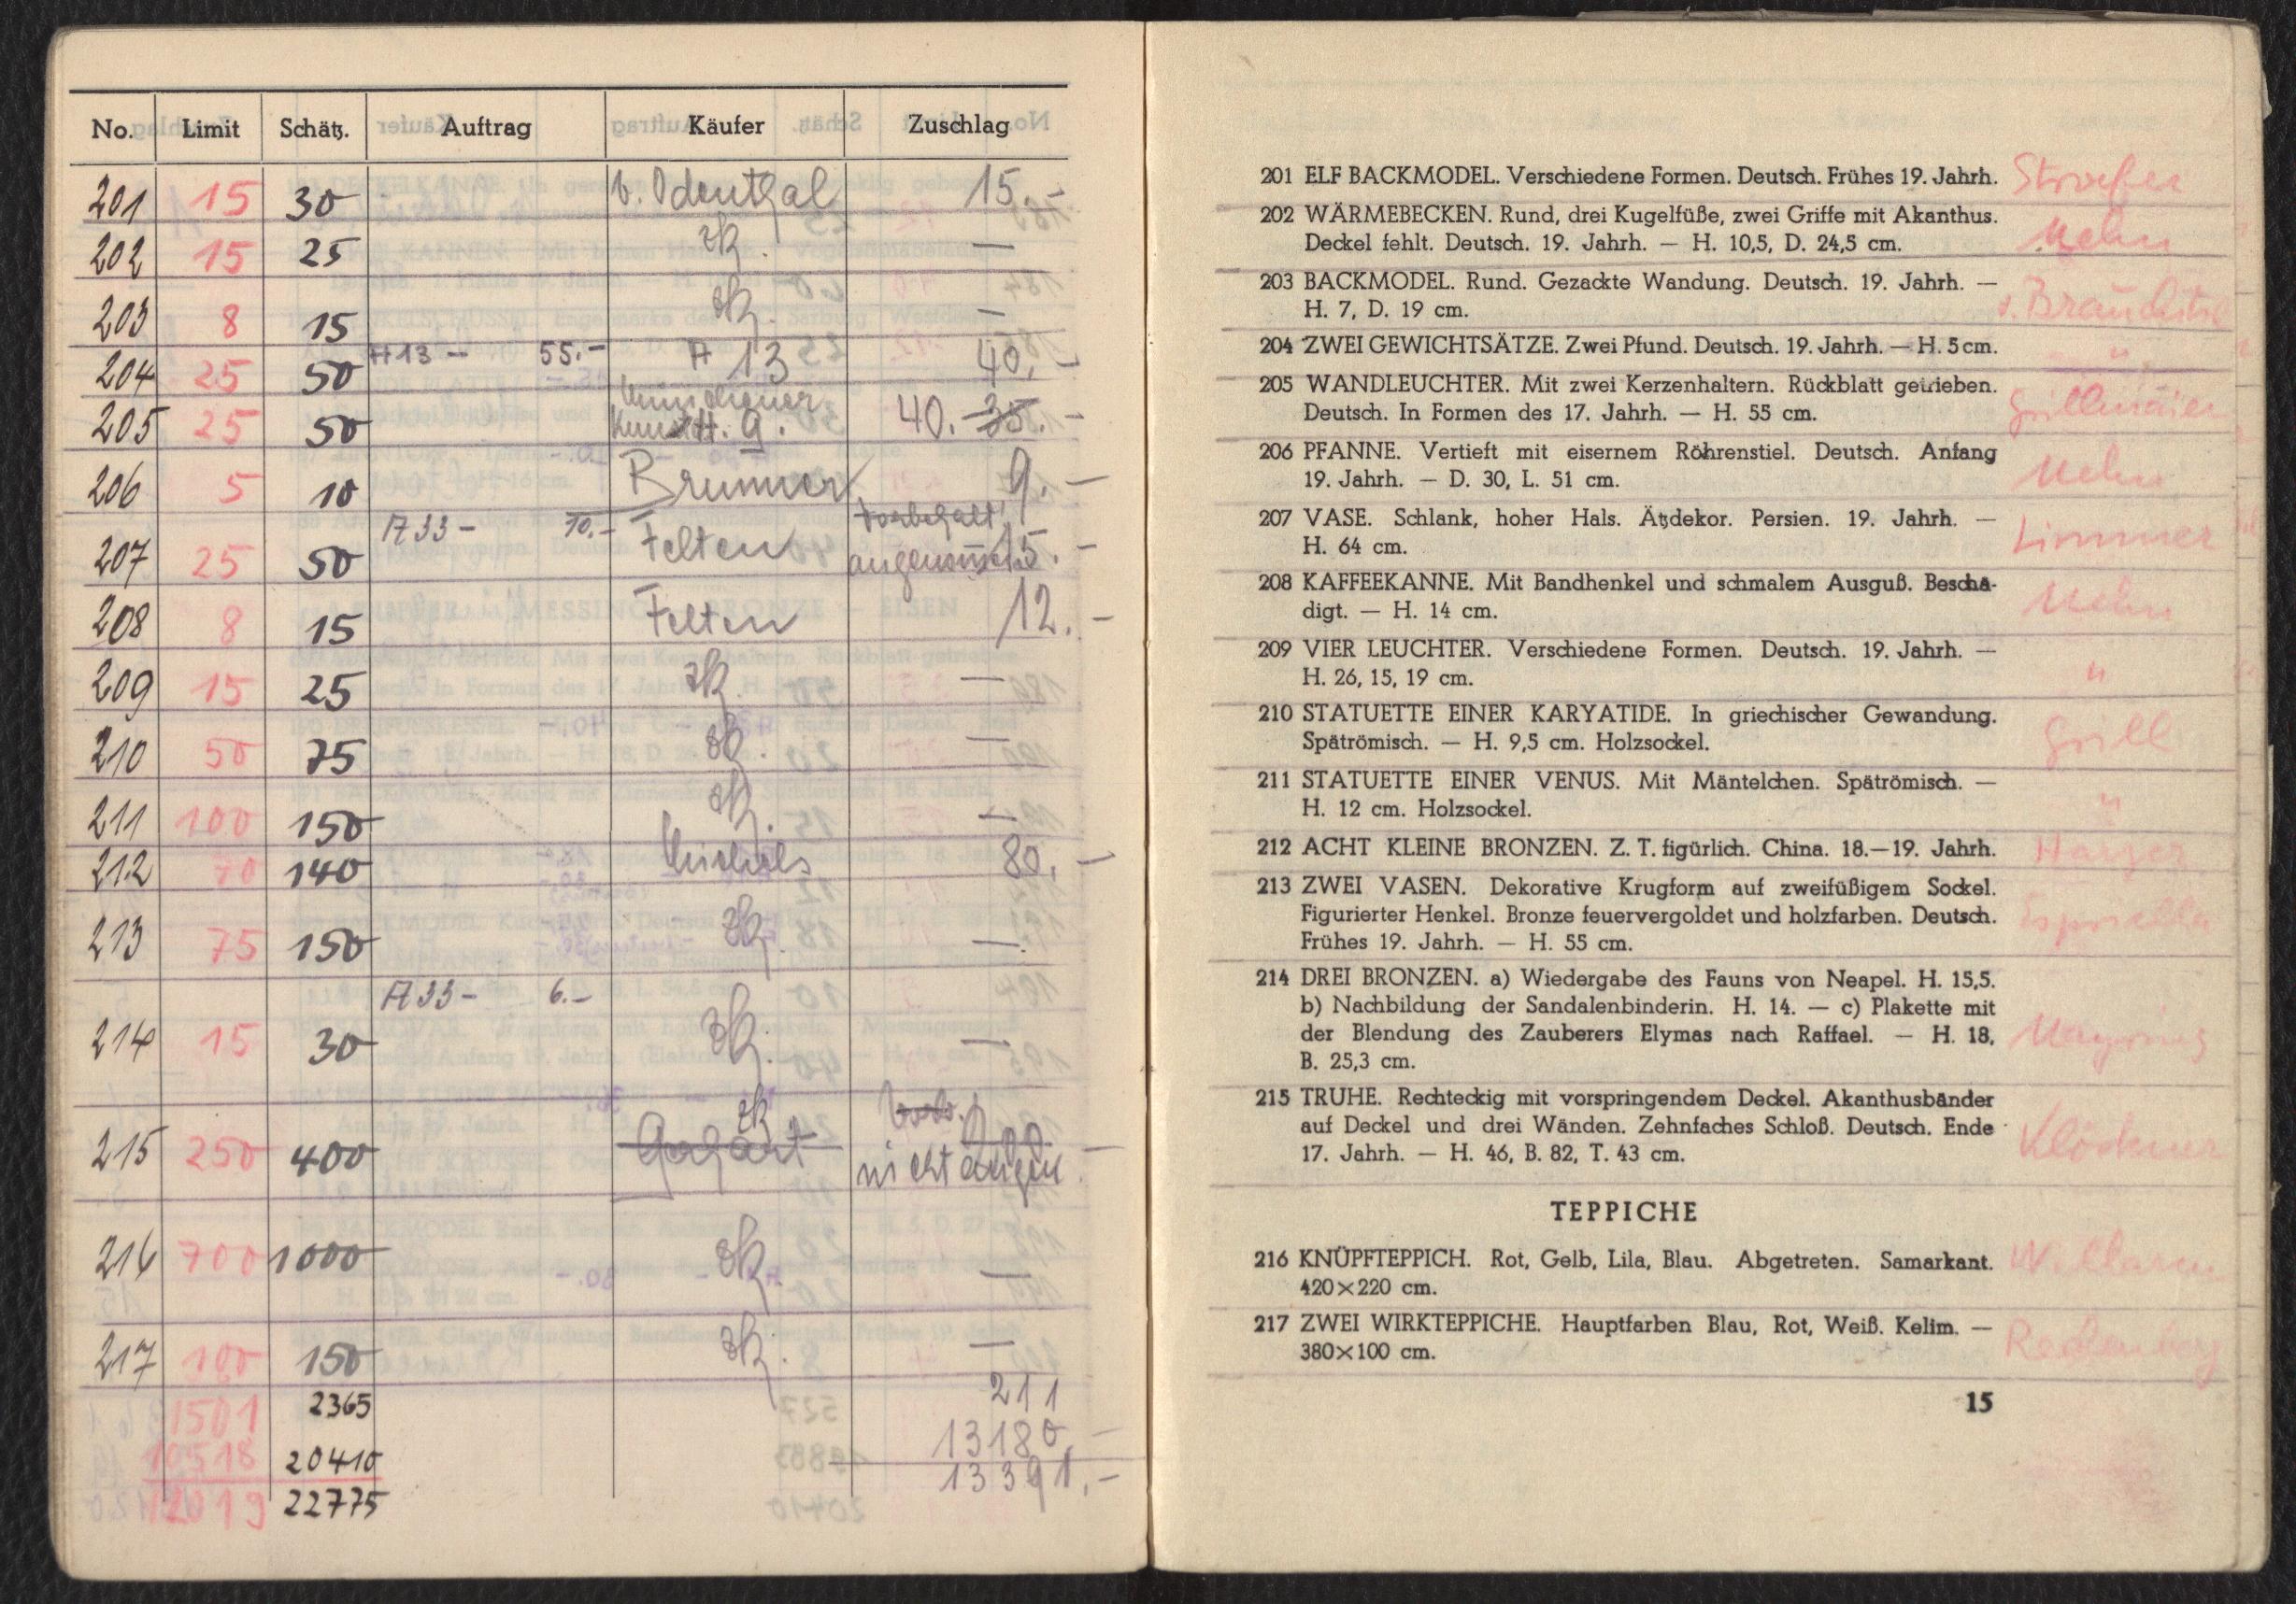 No. Limit Schätz. Auftrag Käufer Zuschlag
201 15 30 v. Odenthal 15.-
202 15 25 zk. —
203 8 15 zk. —
204 25 50 A 13 - 55.- A 13 40.-
205 25 50 Münchener Kunsth. G. 40. 35.-
206 5 10 Brunner 9.-
207 25 50 A 33 - 10.- Felten Vorbehalt 15.-
208 8 15 Felten 12.-
209 15 25 zk. —
210 50 75 zk. —
211 100 150 zk. —
212 70 140 Michels 80.-
213 75 150 zk. —
214 15 30 A 33 - 6.- zk. —
215 250 400 zk
nicht angen.
216 700 1000 zk. —
217 100 150 zk. —
1501 2365 211
10518 20410 13180.-
12019 22775 13391.-
201 ELF BACKMODEL. Verschiedene Formen. Deutsch. Frühes 19. Jahrh.
202 WÄRMEBECKEN. Rund, drei Kugelfüße, zwei Griffe mit Akanthus.
Deckel fehlt. Deutsch. 19. Jahrh. — H. 10,5, D. 24,5 cm.
203 BACKMODEL. Rund. Gezackte Wandung. Deutsch. 19. Jahrh. —
H. 7, D. 19 cm.
204 ZWEI GEWICHTSÄTZE. Zwei Pfund. Deutsch. 19. Jahrh. — H. 5 cm.
205 WANDLEUCHTER. Mit zwei Kerzenhaltern. Rückblatt getrieben.
Deutsch. In Formen des 17. Jahrh. — H. 55 cm.
Grillmaier
206 PFANNE. Vertieft mit eisernem Röhrenstiel. Deutsch. Anfang
19. Jahrh. — D. 30, L. 51 cm.
207 VASE. Schlank, hoher Hals. Ätzdekor. Persien. 19. Jahrh. —
H. 64 cm.
Limmer
208 KAFFEEKANNE. Mit Bandhenkel und schmalem Ausguß. Beschä-
digt. — H. 14 cm.
209 VIER LEUCHTER. Verschiedene Formen. Deutsch. 19. Jahrh. —
H. 26, 15, 19 cm.
"
210 STATUETTE EINER KARYATIDE. In griechischer Gewandung.
Spätrömisch. — H. 9,5 cm. Holzsockel.
Grill
211 STATUETTE EINER VENUS. Mit Mäntelchen. Spätrömisch. —
H. 12 cm. Holzsockel.
"
212 ACHT KLEINE BRONZEN. Z. T. figürlich. China. 18.—19. Jahrh.
213 ZWEI VASEN. Dekorative Krugform auf zweifüßigem Sockel.
Figurierter Henkel. Bronze feuervergoldet und holzfarben. Deutsch.
Frühes 19. Jahrh. — H. 55 cm.
214 DREI BRONZEN. a) Wiedergabe des Fauns von Neapel. H. 15,5.
b) Nachbildung der Sandalenbinderin. H. 14. — c) Plakette mit
der Blendung des Zauberers Elymas nach Raffael. — H. 18,
B. 25,3 cm.
215 TRUHE. Rechteckig mit vorspringendem Deckel. Akanthusbänder
auf Deckel und drei Wänden. Zehnfaches Schloß. Deutsch. Ende
17. Jahrh. — H. 46, B. 82, T. 43 cm.
Klöckner
TEPPICHE
216 KNÜPFTEPPICH. Rot, Gelb, Lila, Blau. Abgetreten. Samarkant.
420×220 cm.
217 ZWEI WIRKTEPPICHE. Hauptfarben Blau, Rot, Weiß. Kelim. —
380×100 cm.
15